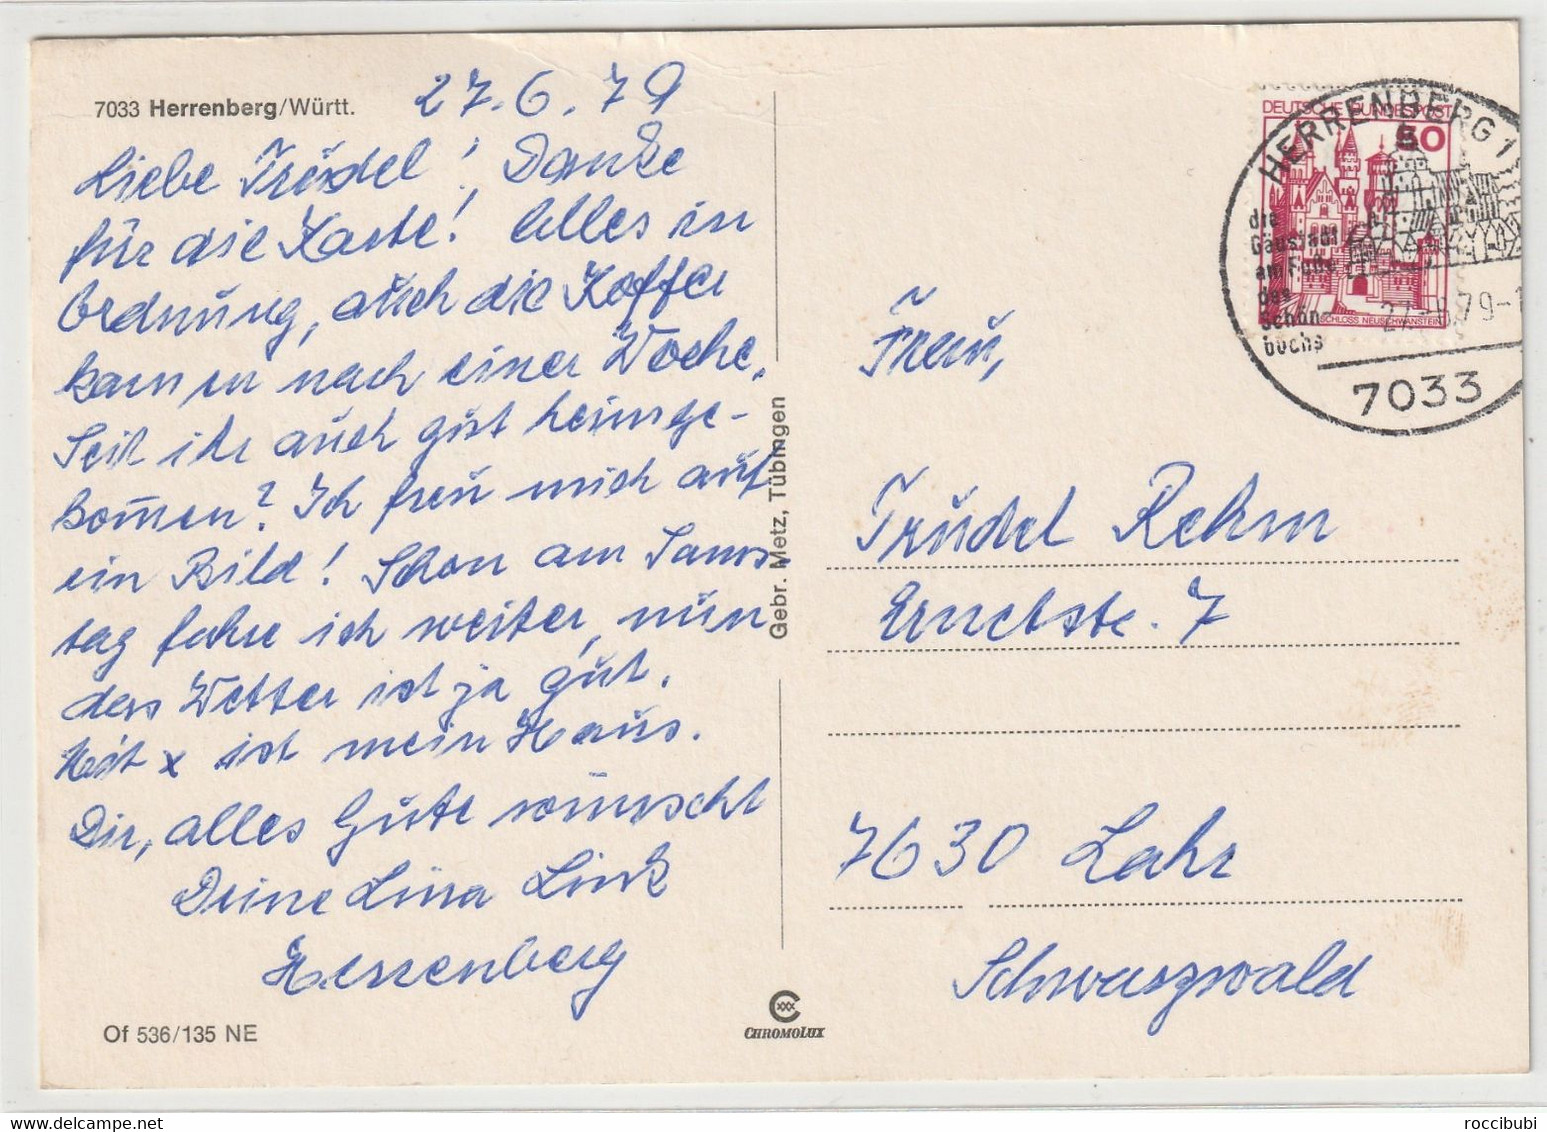 7033 Herrenberg/Württ. 27.6.79
Liebe Trudel! Danke
für die Karte! Alles in
Ordnung, auch die Koffer
kamen nach einer Woche.
Seit ihr auch gut heimge-
kom̄en? Ich freu mich auf
ein Bild! Schon am Sams
tag fahre ich weiter, nun
das Wetter ist ja gut.
Mit x ist mein Haus.
Dir, alles Gute wünscht
Deine Lina Link
Herrenberg
Of 536/135 NE
Gebr. Metz, Tübingen
CHROMOLUX
DEUTSCHE BUNDESPOST
50
SCHLOSS NEUSCHWANSTEIN
HERRENBERG 1
die
Gäustadt
am Fuße
des
Schön-
buchs
7033
Frau,
Trudel Rehm
7
7630 Lahr
Schwarzwald
roccibubi